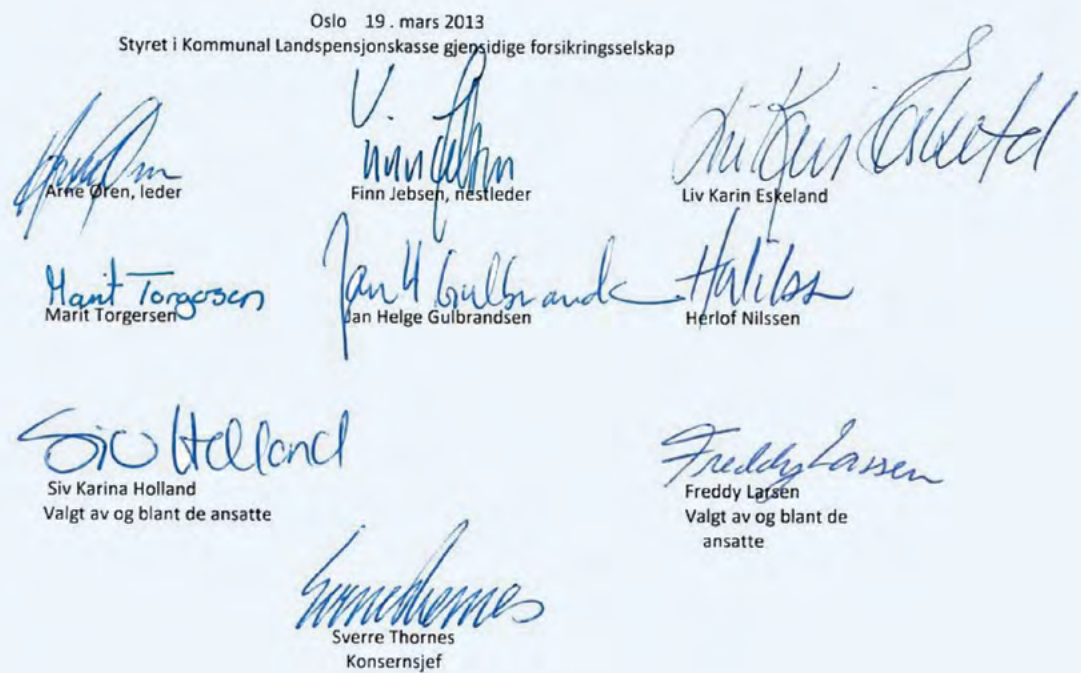 Oslo 19. mars 2013
Styret i Kommunal Landspensjonskasse gjensidige forsikringsselskap
Arne Øren, leder
Finn Jebsen, nestleder
Liv Karin Eskeland
Marit Torgersen
Jan H Gulbrands
Marit Torgersen
Jan Helge Gulbrandsen
Herlof Nilssen
Siv Holland
Siv Karina Holland
Valgt av og blant de ansatte
Freddy Larsen
Freddy Larsen
Valgt av og blant de
ansatte
Sverre Thornes
Konsernsjef